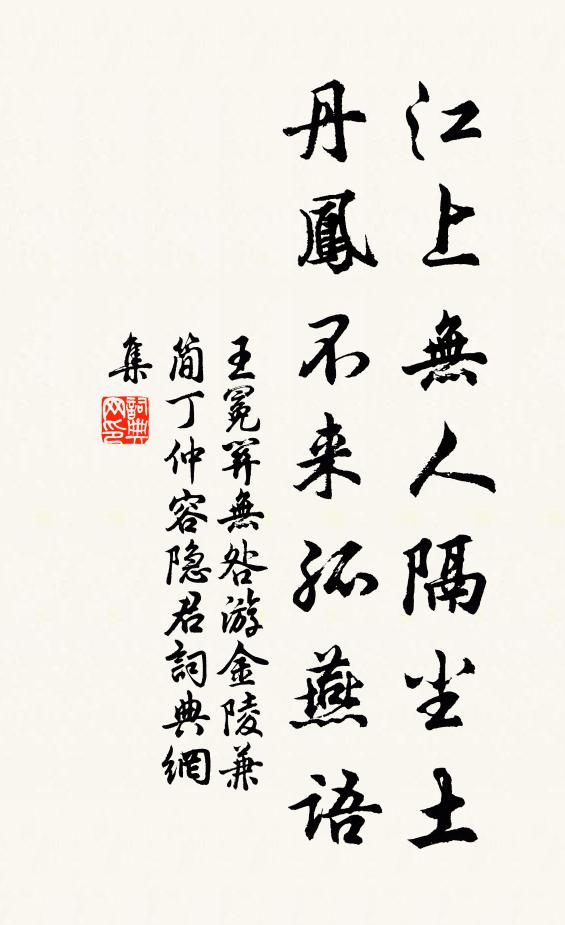 江上無人隔尘土
丹鳳不来孤燕语
王冕筓無咎游金陵兼
简丁仲容隐君詞典網
集
詞典
网印